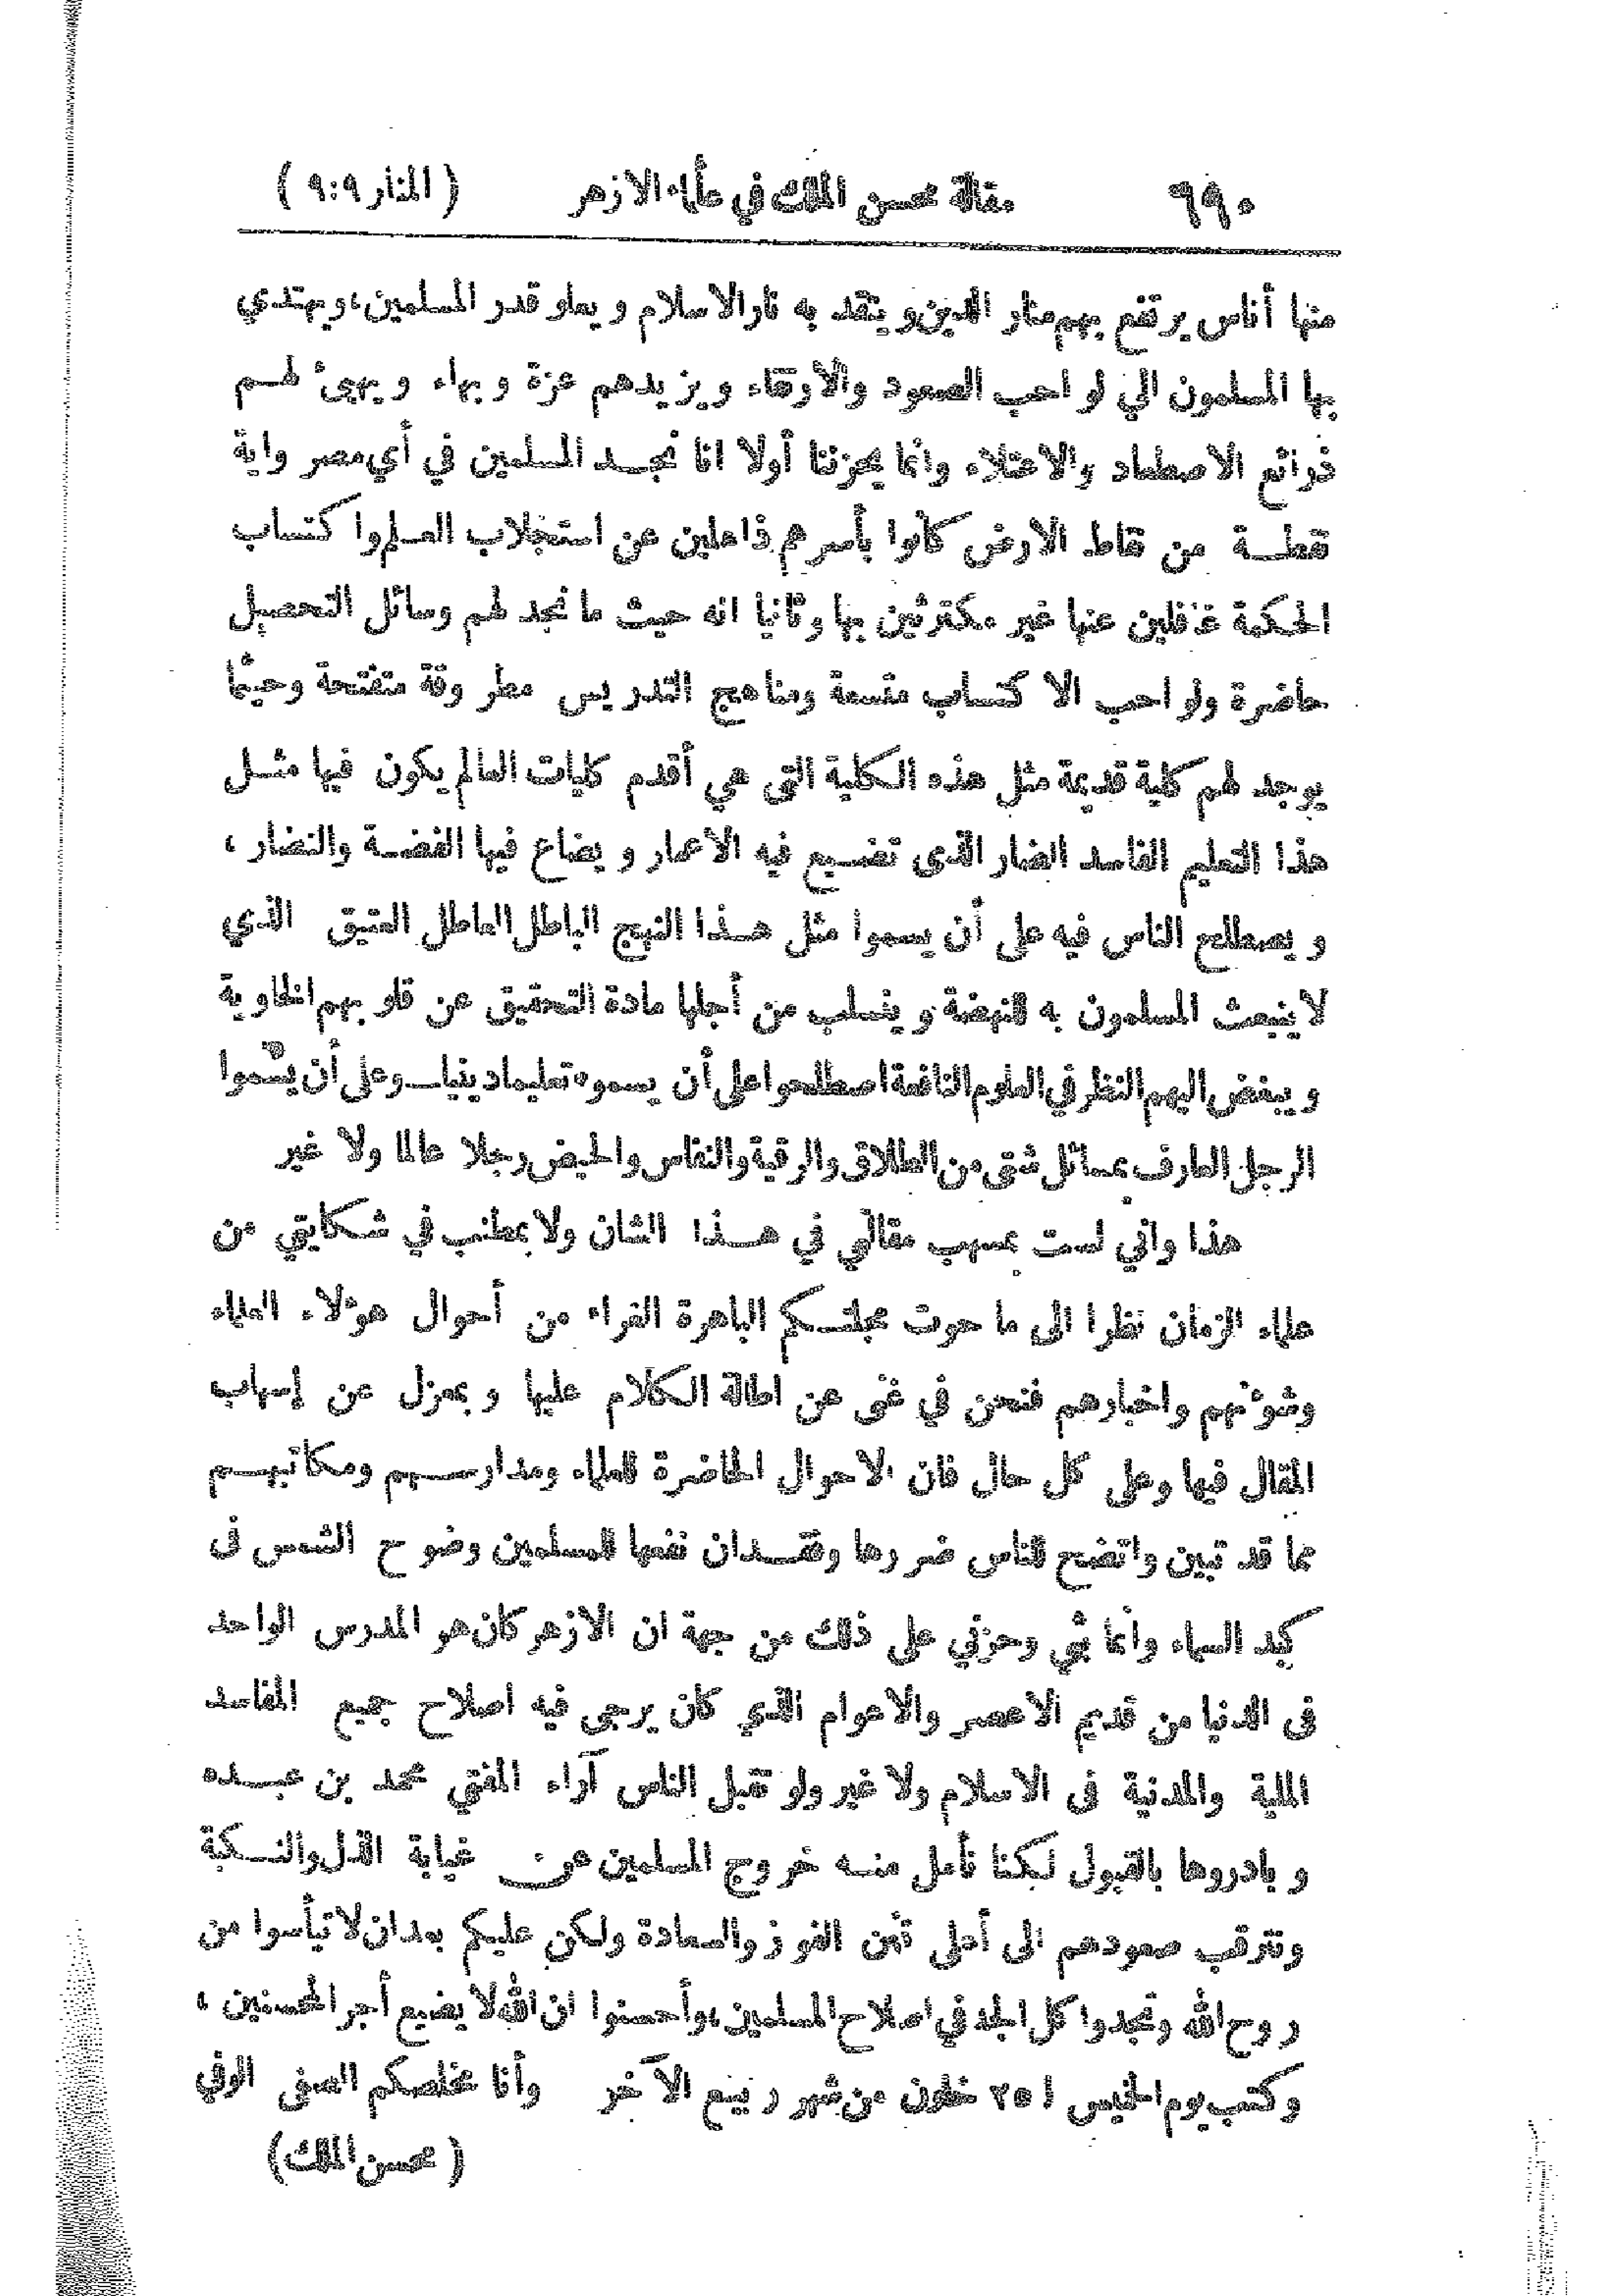 ٦٩٠ مقالة محسن الملك في علماء الازهر (المنار ٩:٩)
منها أناس يرتفع بهم منار الدين ويتقد به نار الاسلام ويعلو قدر المسلمين، ويهتدي
بها المسلمون الي لواحب الصعود والارتقاء ويزيدهم عزة وبهاء ويهيئ لهم
ذرائع الاصطعاد والاعتلاء وانما يحزننا أولا انا نجد المسلمين في أي مصر واية
قطعة من نقاط الارض كانوا بأسرهم ذاهلين عن استجلاب العلم واكتساب
الحكمة غافلين عنها غير مكترثين بها وثانيا انه حيث ما نجد لهم وسائل التحصيل
حاضرة ولواحب الاكتساب متسعة ومناهج التدريس مطروقة متفتحة وحيثما
يوجد لهم كلية قديمة مثل هذه الكلية التي هي أقدم كليات العالم يكون فيها مثل
هذا التعليم الفاسد الضار الذى تضيع فيه الاعمار ويضاع فيها الفضة والنضار ،
ويصطلح الناس فيه على أن يسموا مثل هذا النهج الباطل العاطل العتيق الذي
لا ينبعث المسلمون به للنهضة وينسلب من أجلها مادة التحقيق عن قلوبهم الخاوية
ويبغض اليهم النظر في العلوم النافعة اصطلحوا على أن يسموه تعليما دينيا وعلى أن يسموا
الرجل العارف بمسائل شتى من الطلاق والرقية والنفاس والحيض رجلا عالما ولا غير
هذا واني لست بمسهب مقالتي في هذا الشان ولا بمطنب في شكايتي من
علماء الزمان نظرا الى ما حوت مجلتكم الباهرة الغراء من أحوال هؤلاء العلماء
وشؤنهم واخبارهم فنحن في غنى عن اطالة الكلام عليها وبمعزل عن إسهاب
المقال فيها وعلى كل حال فان الاحوال الحاضرة للعلماء ومدارسهم ومكاتبهم
مما قد تبين واتضح للناس ضررها وفقدان نفعها للمسلمين وضوح الشمس فى
كبد السماء وانما بثي وحزني على ذلك من جهة ان الازهر كان هو المدرس الواحد
فى الدنيا من قديم الاعصر والاعوام الذي كان يرجى فيه اصلاح جميع المفاسد
الملية والمدنية فى الاسلام ولا غير ولو تقبل الناس آراء المفتي محمد بن عبده
وبادروها بالقبول لكنا نأمل منه خروج المسلمين عن غيابة الذل والنكبة
ونترقب صعودهم الى أعلى قنن الفوز والسعادة ولكن عليكم بعد ان لا تيأسوا من
روح الله وتجدوا كل الجد في اصلاح المسلمين، وأحسنوا ان الله لا يضيع أجر المحسنين ،
وكتب يوم الخميس ا ٢٥ خلون من شهر ربيع الآخر وأنا مخلصكم الصفى الوفي
(محسن الملك)